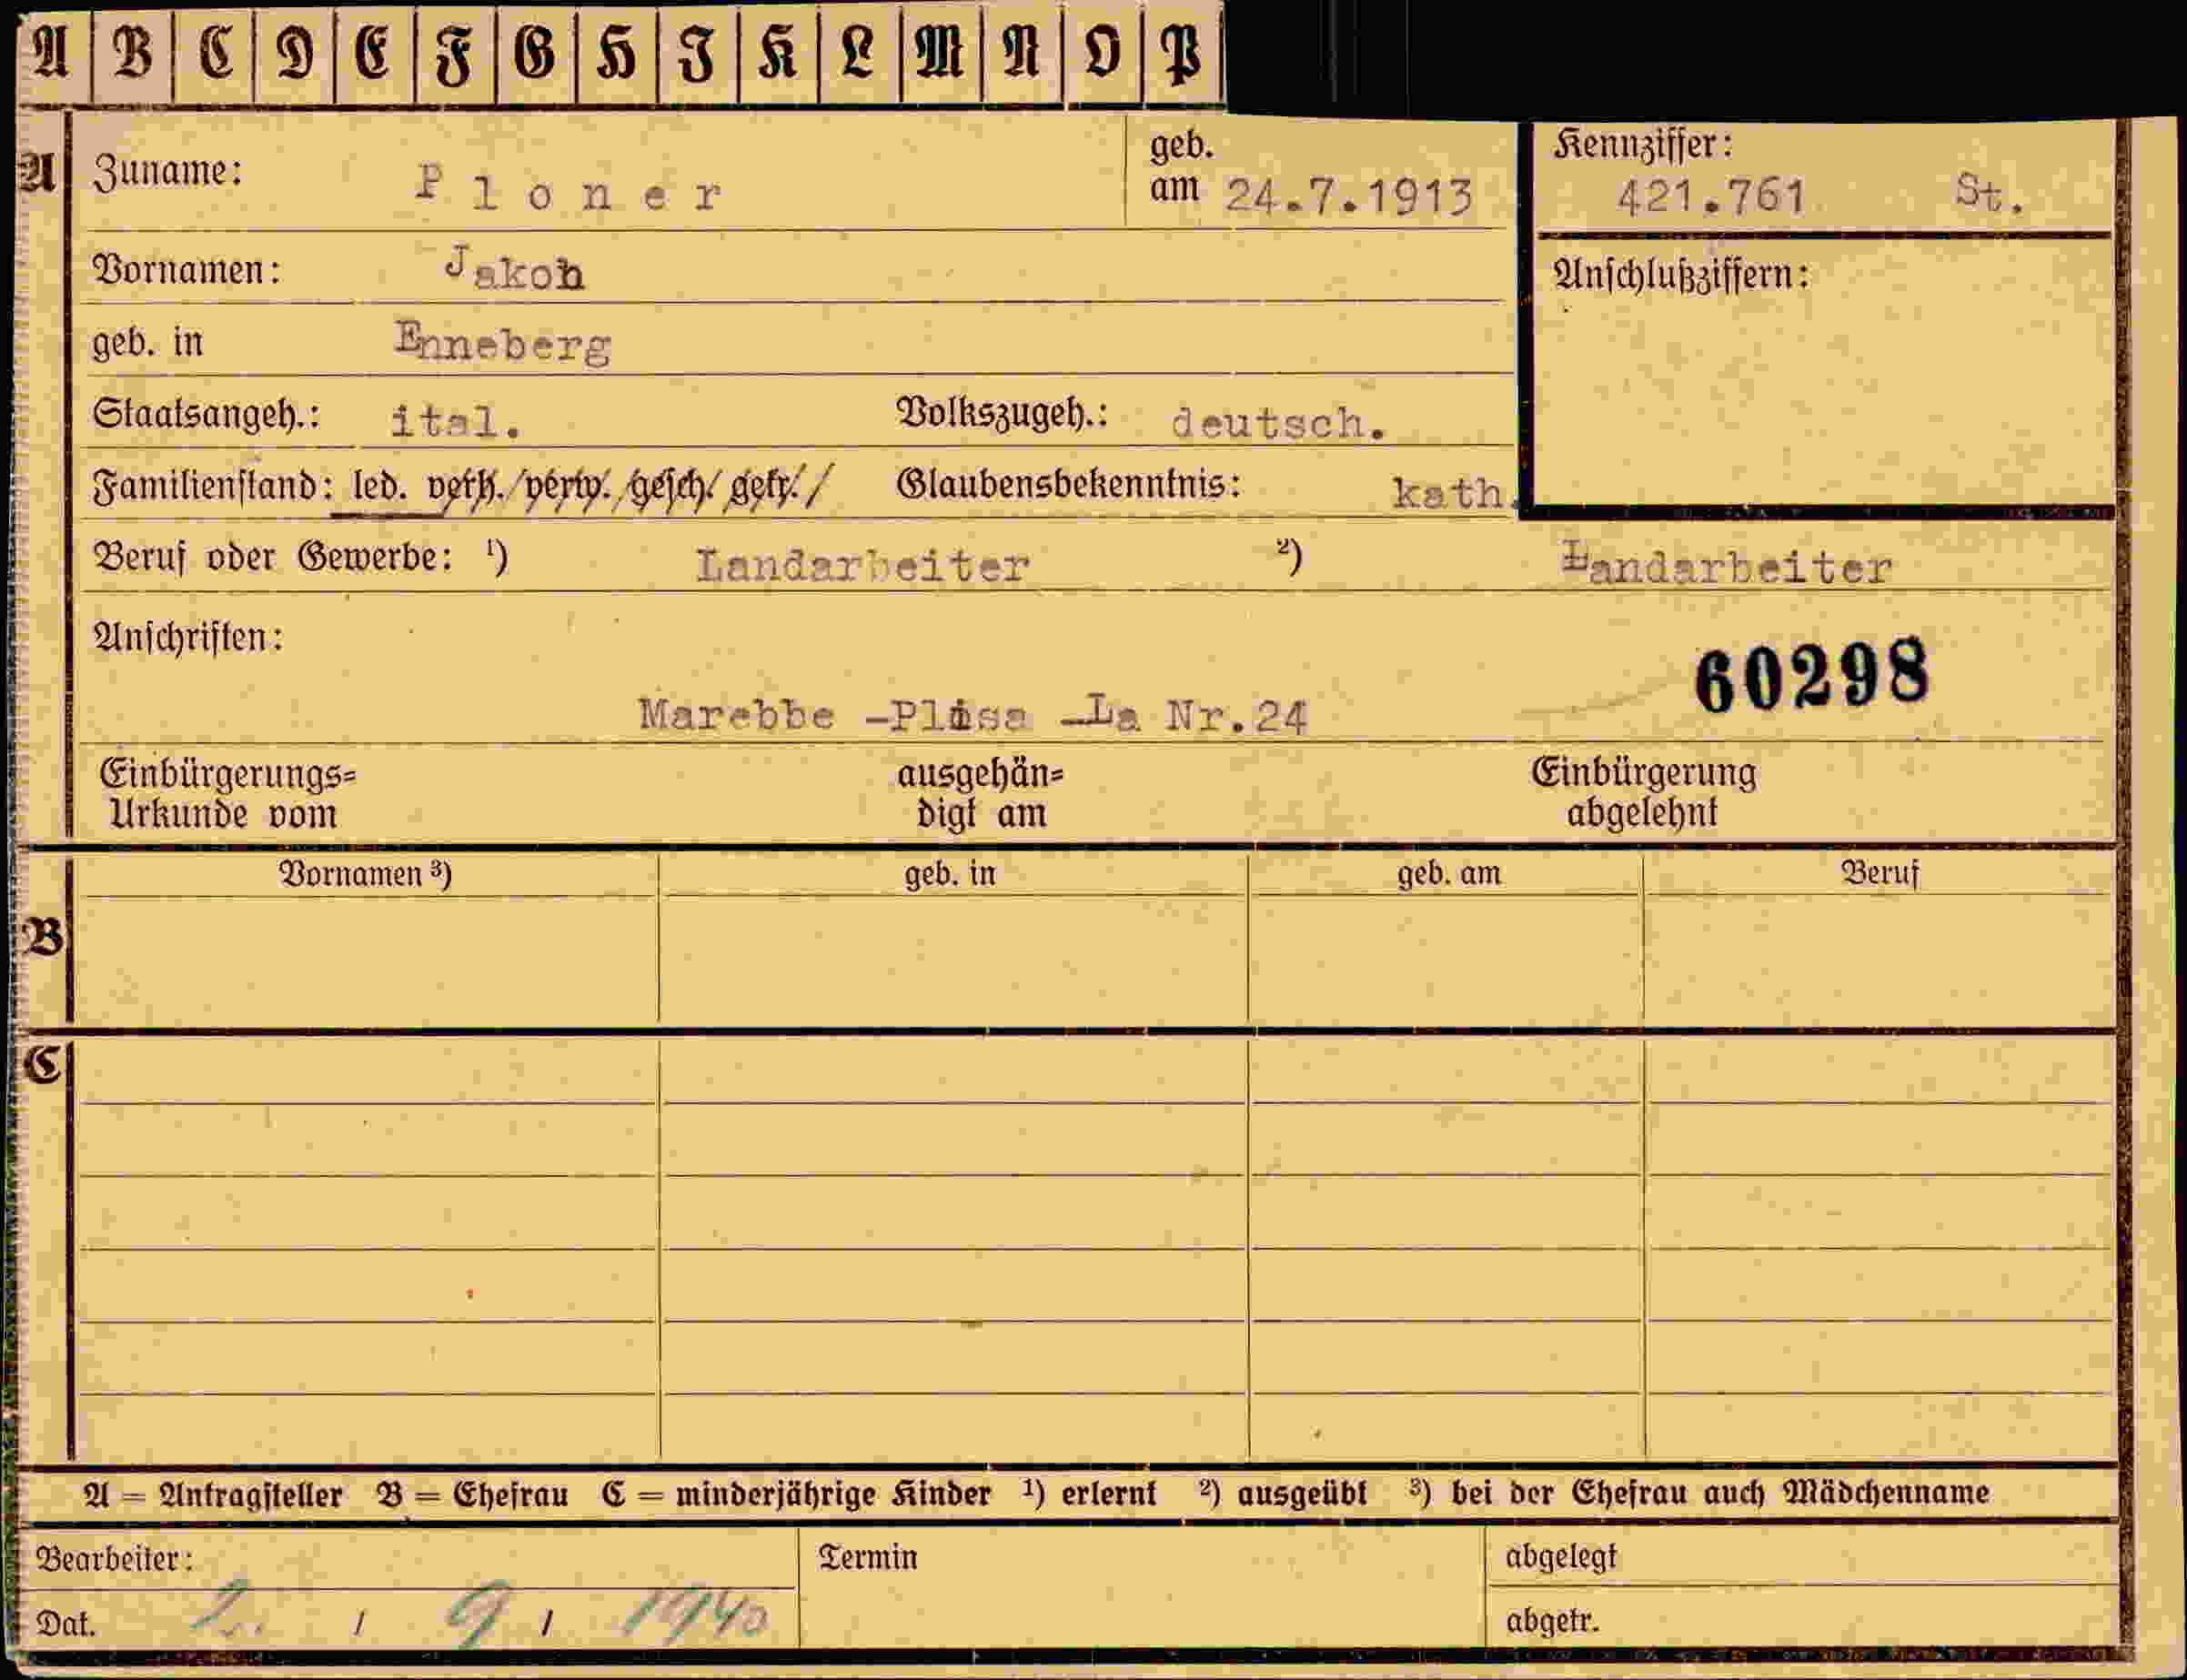 A B C D E F G H I K L M N O P
A Zuname: Ploner geb. am 24.7.1913 Kennziffer: 421.761 St.
Vornamen: Jakob Anschlußziffern:
geb. in Enneberg
Staatsangeh.: ital. Volkszugeh.: deutsch.
Familienstand: led. verh./verw./gesch./getr./ Glaubensbekenntnis: kath.
Beruf oder Gewerbe: ¹) Landarbeiter ²) Landarbeiter
Anschriften:
60298
Marebbe -Plisa -La Nr.24
Einbürgerungs= ausgehän= Einbürgerung
Urkunde vom digt am abgelehnt
Vornamen ³) geb. in geb. am Beruf
B
C
A = Antragsteller B = Ehefrau C = minderjährige Kinder ¹) erlernt ²) ausgeübt ³) bei der Ehefrau auch Mädchenname
Bearbeiter: Termin abgelegt
Dat. 2. / 9 / 1940 abgetr.